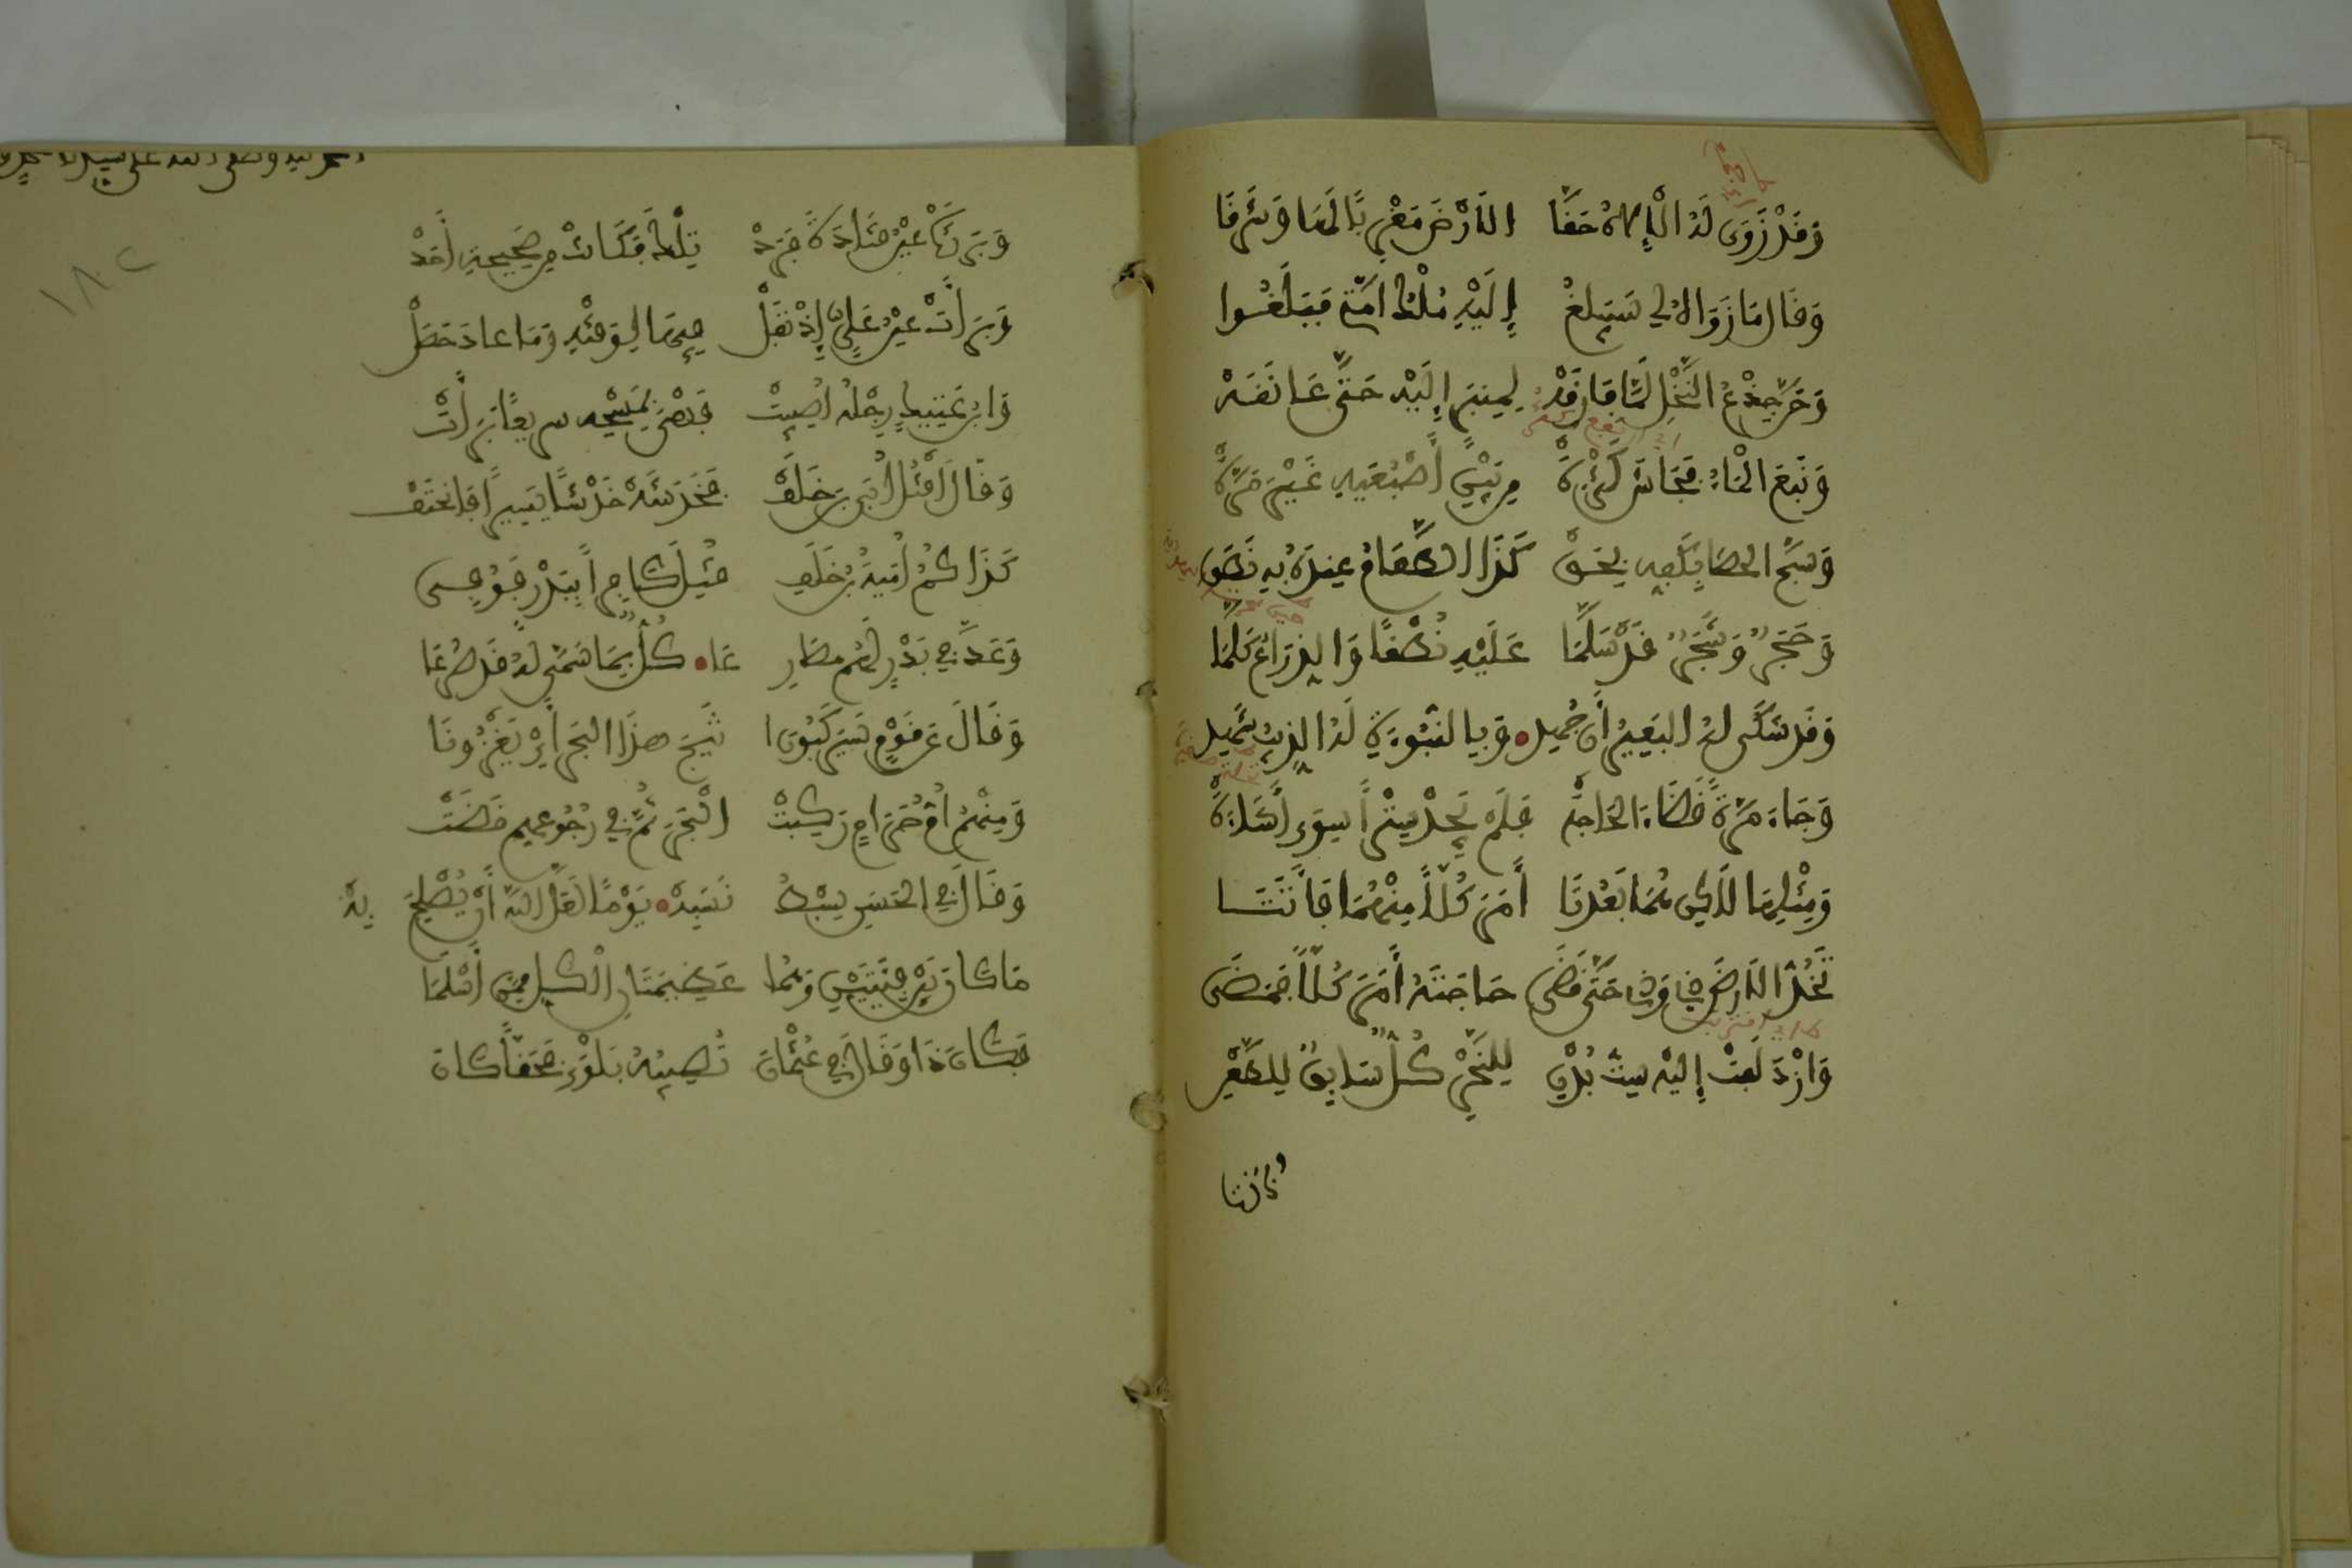 وَقَدْ زَوَى لَهُ الْإِلَهُ حَقَّا الَارْضَ مَغْرِبًا لَهَا وَشَرْقَا
وَقَالَ مَا زَوَاهُ لِي سَيَبْلُغُ إِلَيْهِ مُلْكُ امَّتِي فَبَلَغُوا
وَحَنَّ جِذْعُ النَّخْلِ لَمَّا فَارَقَهْ لِمِنْبَرٍ إِلَيْهِ حَتَّى عَانَقَهْ
وَنَبَعَ الْمَاءُ فَجَاشَ كَثْرَةً مِن بَيْنِ أَصْبُعَيْهِ غَيْرَ مَرَّةْ
وَسَبَّحَ الحَصَا بِكَفِّهِ بِحَقّْ كَذَا الطَّعَامُ عِنْدَهُ بِهِ نَطَقْ
وَحَجَرٌ وَشَجَرٌ قَدْ سَلَّمَا عَلَيْهِ نُطْقًا وَالذِّرَاعُ كَلَّمَا
وَقَد شَكَى لَهُ البَعِيرُ أَن جُهِد وَبِالنُّبُوَّةِ لَهُ الذِّيبُ شَهِد
وَجَاءَ مَرَّةً قَضَاءَ الحَاجَةِ فَلَمْ يَجِدْ سِتْرًا سِوَى أَشَاءَةِ
وَمِثْلِهَا لَكِن هُمَا بَعُدَتَا أَمَرَ كُلًّا مِنْهُمَا فَأَتَتَا
تَخُدُّ الَارْضَ ذِي وَذِي حَتَّى قَضَى حَاجَتَهُ أَمَرَ كُلًّا فَمَضَى
وَازْدَلَفَتْ إِلَيْهِ سِتُّ بُدْنِ لِلنَّحْرِ كُلٌّ سَابِقٌ لِلطَّعْنِ
وَنَدَرَتْ عَيْنُ قَتَادَةَ فَرَدْ تِلْكَ فَكَانَتْ مِن صَحِيحَةٍ أَحَدْ
وَبَرِأَتْ عَيْنُ عَلِيٍّ إِذْ تَفَلْ فِيهَا لِوَقْتِهِ وَمَا عَادَ حَصَلْ
وَابْنُ عَتِيكٍ رِجْلُهُ اُصِيبَتْ فَهْيَ بِمَسْحِهِ سَرِيعًا بَرِأَتْ
وَقَالَ أَقْتُلُ اُبَيَّ بْنَ خَلَفْ فَخَدَشَهْ خَدْشًا يَسِيرًا فَانْحَتَفْ
كَذَاكُمُ اُمَيَّةُ بْنُ خَلَفِ قُتِلَ كَافِرًا بِبَدْرٍ فَوُفِي
وَعَدَّ فِي بَدْرٍ لَهُم مَصَارِعَا كُلٌّ بِمَا سَمَّى لَهُ قَد صُرِعَا
وَقَالَ عَن قَوْمٍ سَيَرْكَبُونَا ثَبَجَ هَذَا البَحْرِ أَيْ يَغْزُونَا
وَمِنْهُمُ اُمُّ حَرَامٍ رَكِبَتْ الْبَحْرَ ثُمَّ فِي رُجُوعِهِم قَضَتْ
وَقَالَ فِي الحَسَنِ سِبْطِهِ نَسَبْهْ يَوْمًا لَعَلَّ اللهَ أَنْ يُصْلِحَ بِهْ
مَا كَانَ بَيْنَ فِئَتَيْنِ وَهُمَا عَظِيمَتَانِ الْكُلُّ مِمَّن أَسْلَمَا
فَكَانَ ذَا وَقَالَ فِي عُثْمَانَ تُصِيبُهُ بَلْوَى فَحَقًّا كَانَ
١٨٢